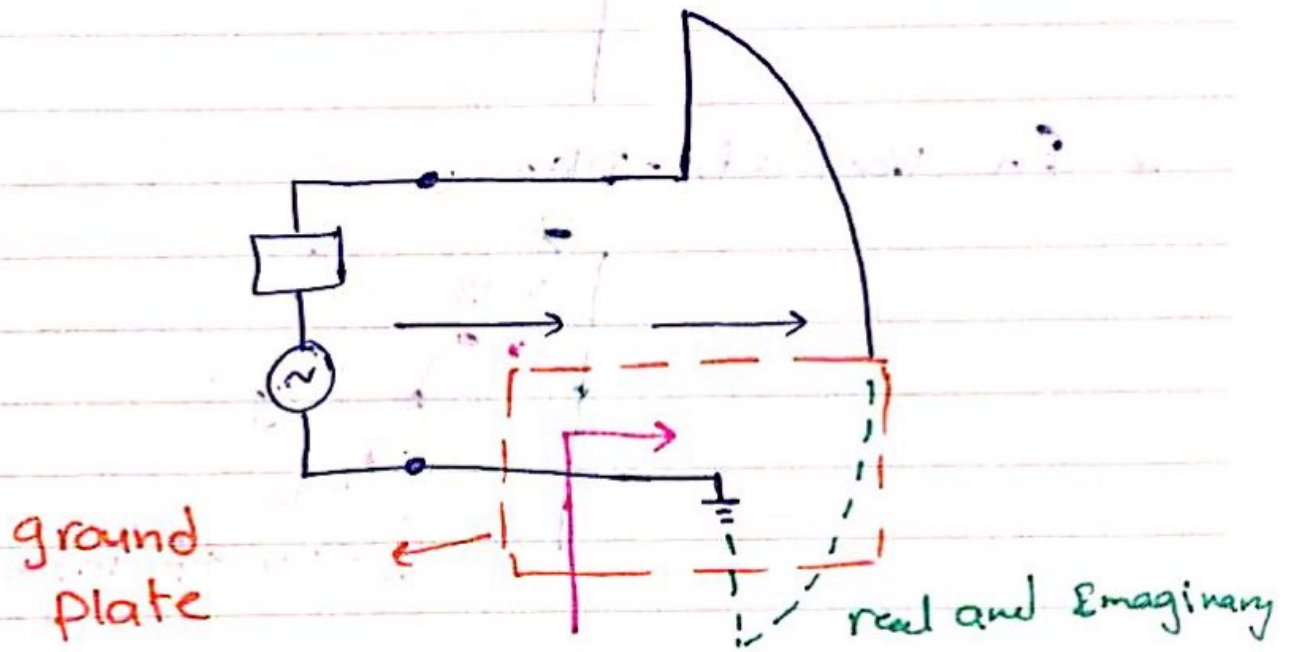 ~
ground
plate
real and Imaginary